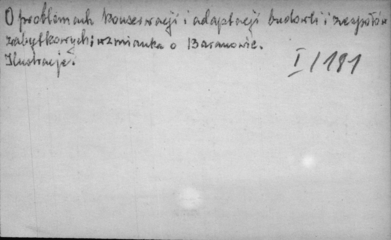 O problemach konserwacji i adaptacji budowli i zespołów
zabytkowych; wzmianka o Baranowie.
Ilustracje.
I/181